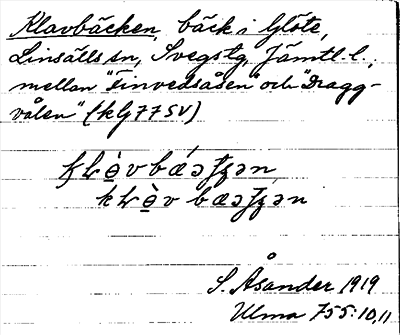 Klavbäcken, bäck i Glöte,
Linsälls sn, Svegs tg, Jämtl. l.,
mellan "Finvedsåsen" och "Dragg-
vålen" (kG 77 SV)
S. Åsander 1919
Ulma 755:10,11